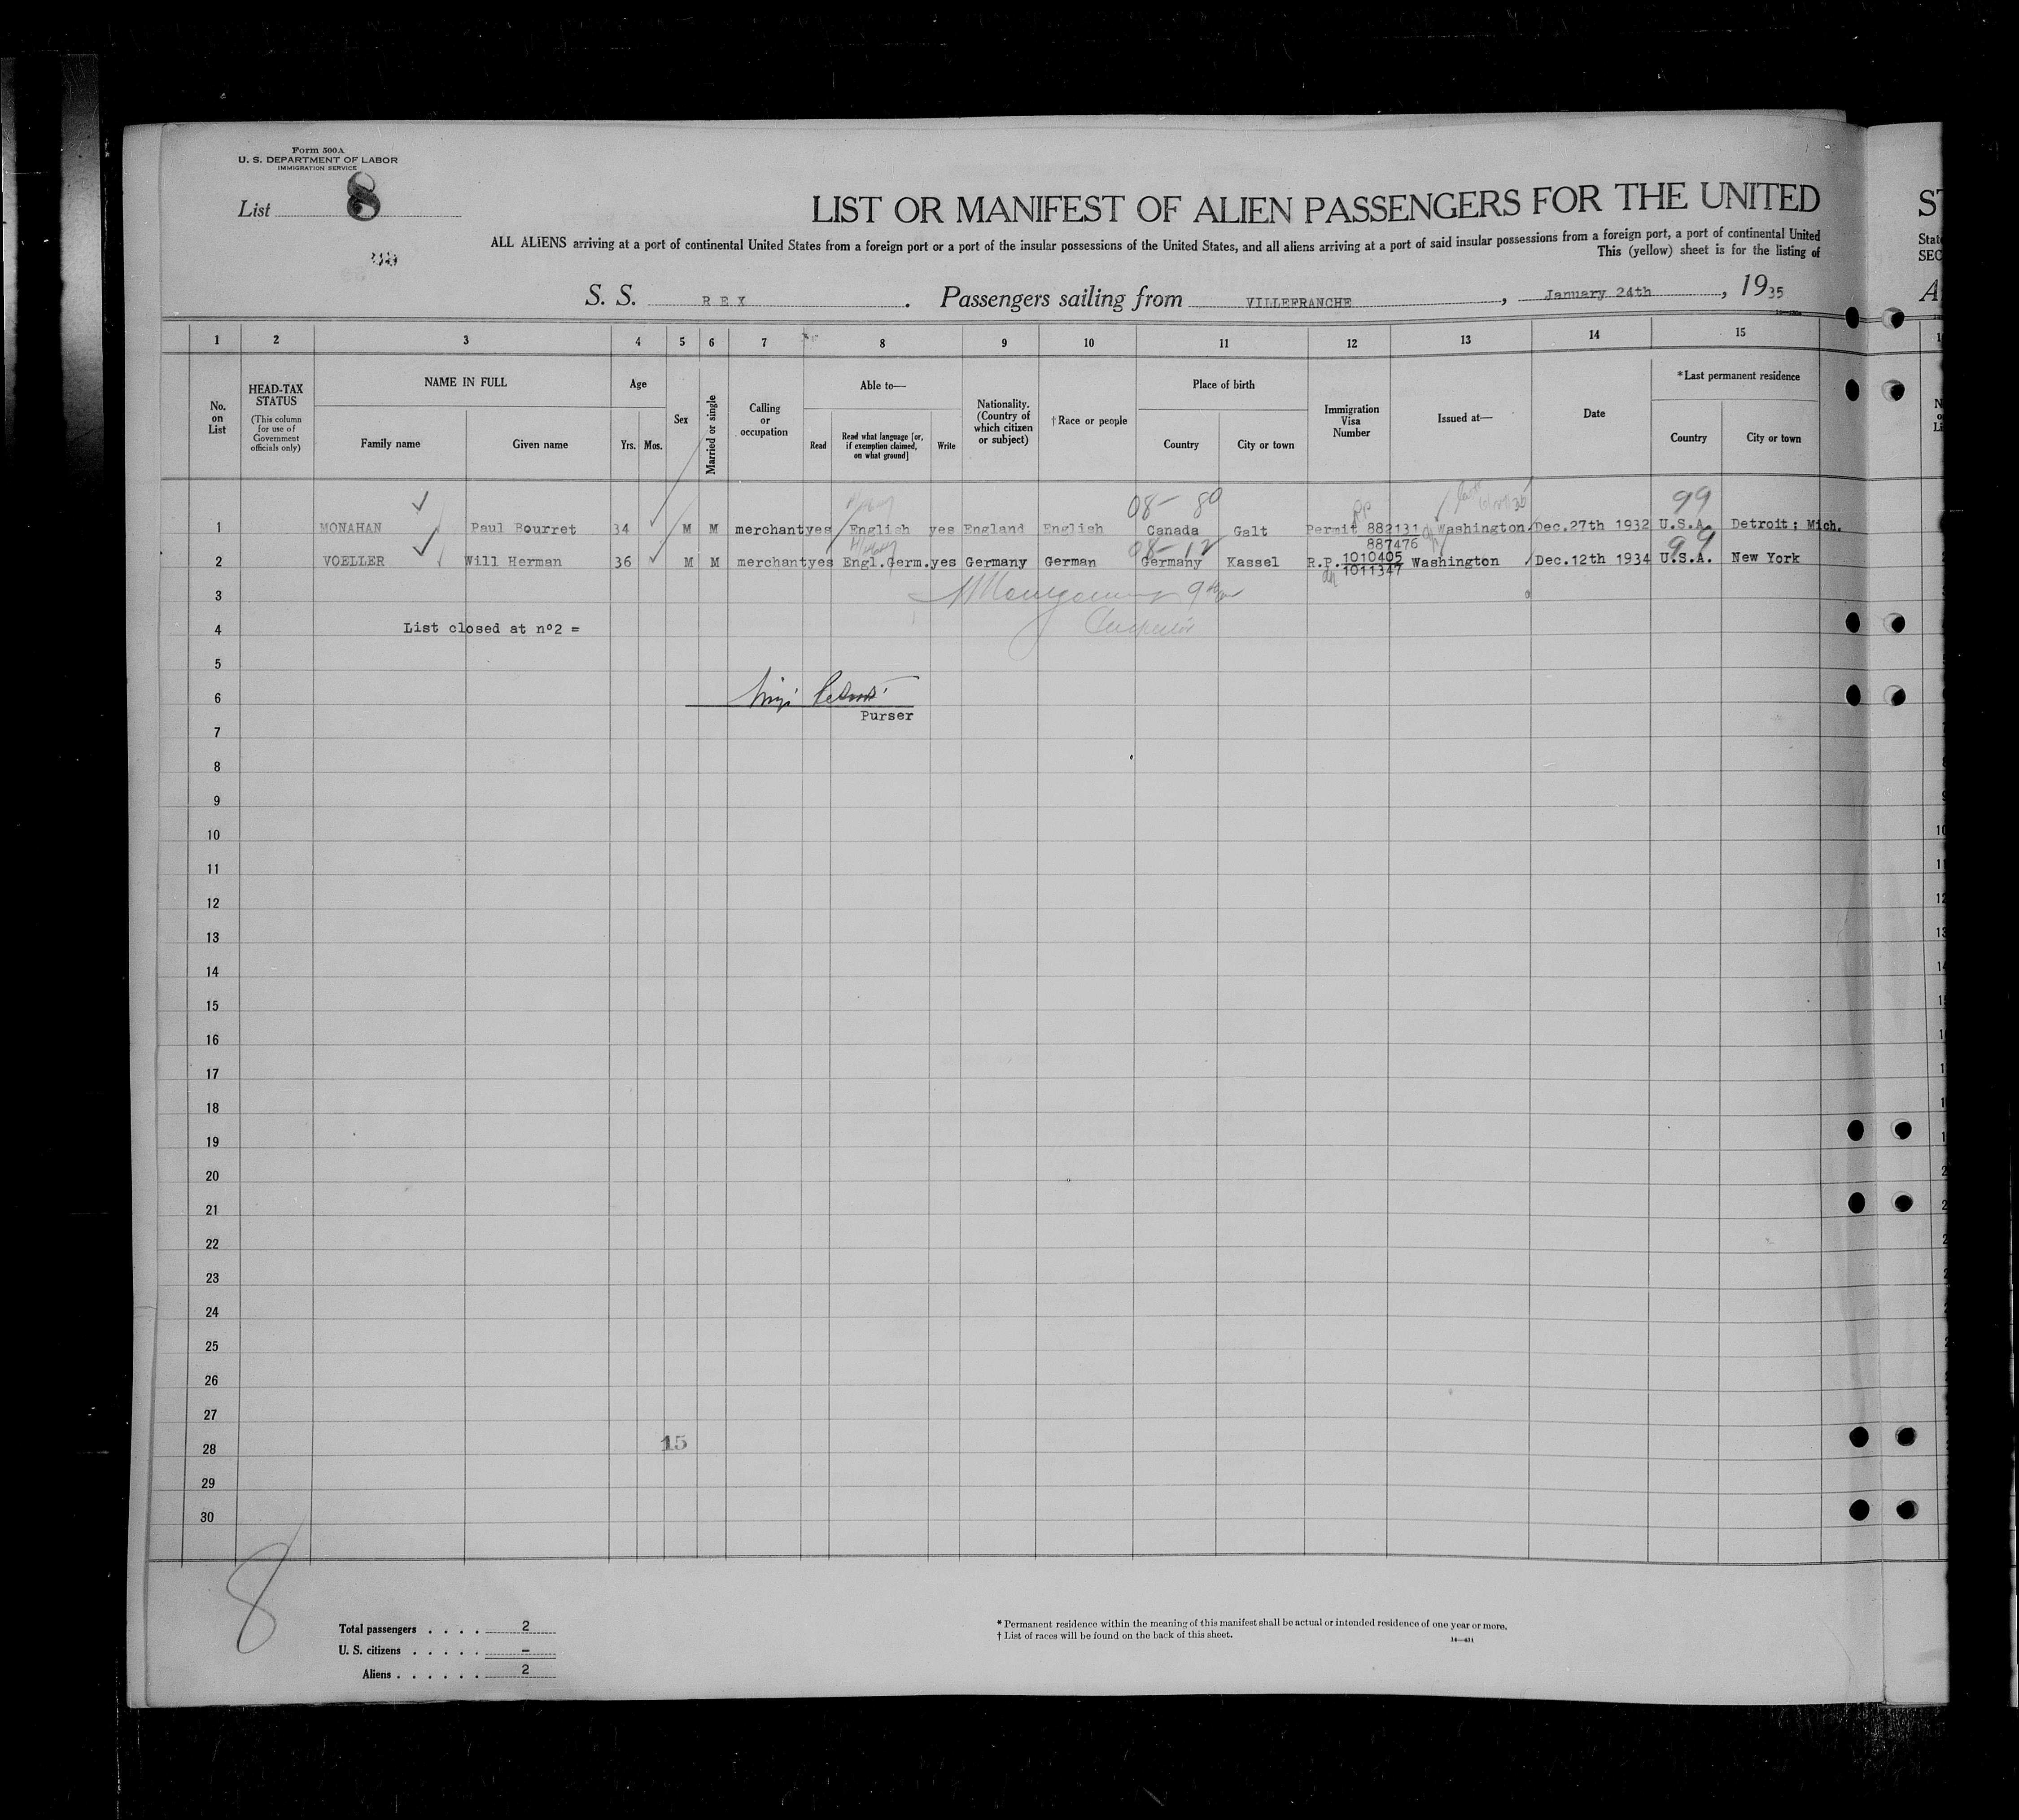 Form 500A
U. S. DEPARTMENT OF LABOR
IMMIGRATION SERVICE
List 8
LIST OR MANIFEST OF ALIEN PASSENGERS FOR THE UNITED
ALL ALIENS arriving at a port of continental United States from a foreign port or a port of the insular possessions of the United States, and all aliens arriving at a port of said insular possessions from a foreign port, a port of continental United
This (yellow) sheet is for the listing of
S. S. REX. Passengers sailing from VILLEFRANCHE, January 24th, 1935
1 2 3 4 5 6 7 8 9 10 11 12 13 14 15
No. on List
HEAD-TAX STATUS
(This column for use of Government officials only)
NAME IN FULL
Family name
Given name
Age
Yrs. Mos.
Sex
Married or single
Calling or occupation
Able to—
Read
Read what language [or, if exemption claimed, on what ground]
Write
Nationality. (Country of which citizen or subject)
†Race or people
Place of birth
Country
City or town
Immigration Visa Number
Issued at—
Date
*Last permanent residence
Country
City or town
08- 80 99
1 MONAHAN Paul Bourret 34 M M merchant yes English yes England English Canada Galt Permit 882131 Washington Dec.27th 1932 U.S.A. Detroit; Mich.
08-12 887476 99
2 VOELLER Will Herman 36 M M merchant yes Engl.Germ. yes Germany German Germany Kassel R.P. 1010405 Washington Dec.12th 1934 U.S.A. New York
1011347
3
4 List closed at nº2 =
Inspector
5
6
Purser
7
8
9
10
11
12
13
14
15
16
17
18
19
20
21
22
23
24
25
26
27
28 15
29
30
8
Total passengers . . . . 2
U. S. citizens . . . . . –
Aliens . . . . . . 2
* Permanent residence within the meaning of this manifest shall be actual or intended residence of one year or more.
† List of races will be found on the back of this sheet.
14—431